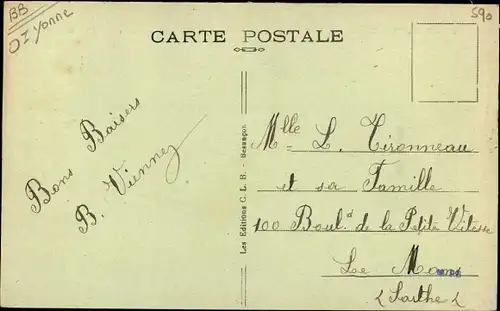 BB
OIYonne
590
CARTE POSTALE
Bons Baisers
B. Vienney
Les Editions C. L. B. - Besançon
Mlle L. Tironneau
et sa Famille
100 Boul.d de la Petite Vitesse
Le Mans
(Sarthe)